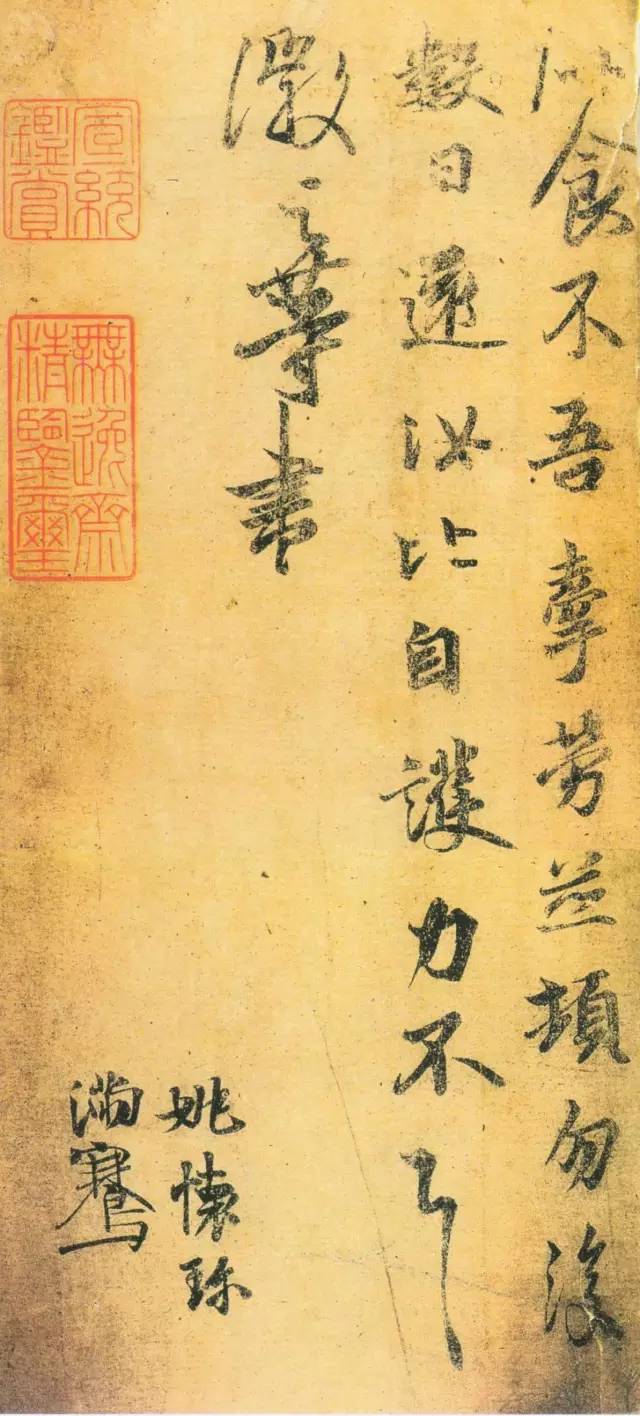 似食不吾牽勞並頓勿復
數日還汝比自護力不一一
徽之等書
姚懷珍
滿騫
宣統
鑑賞
無逸齋
精鑒璽